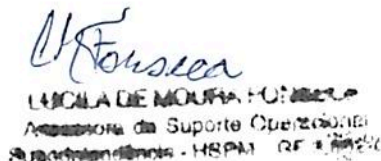 Fonseca
LUCILA DE MOURA FONSECA
Assessora da Suporte Operacional
Superintendência - HBPM